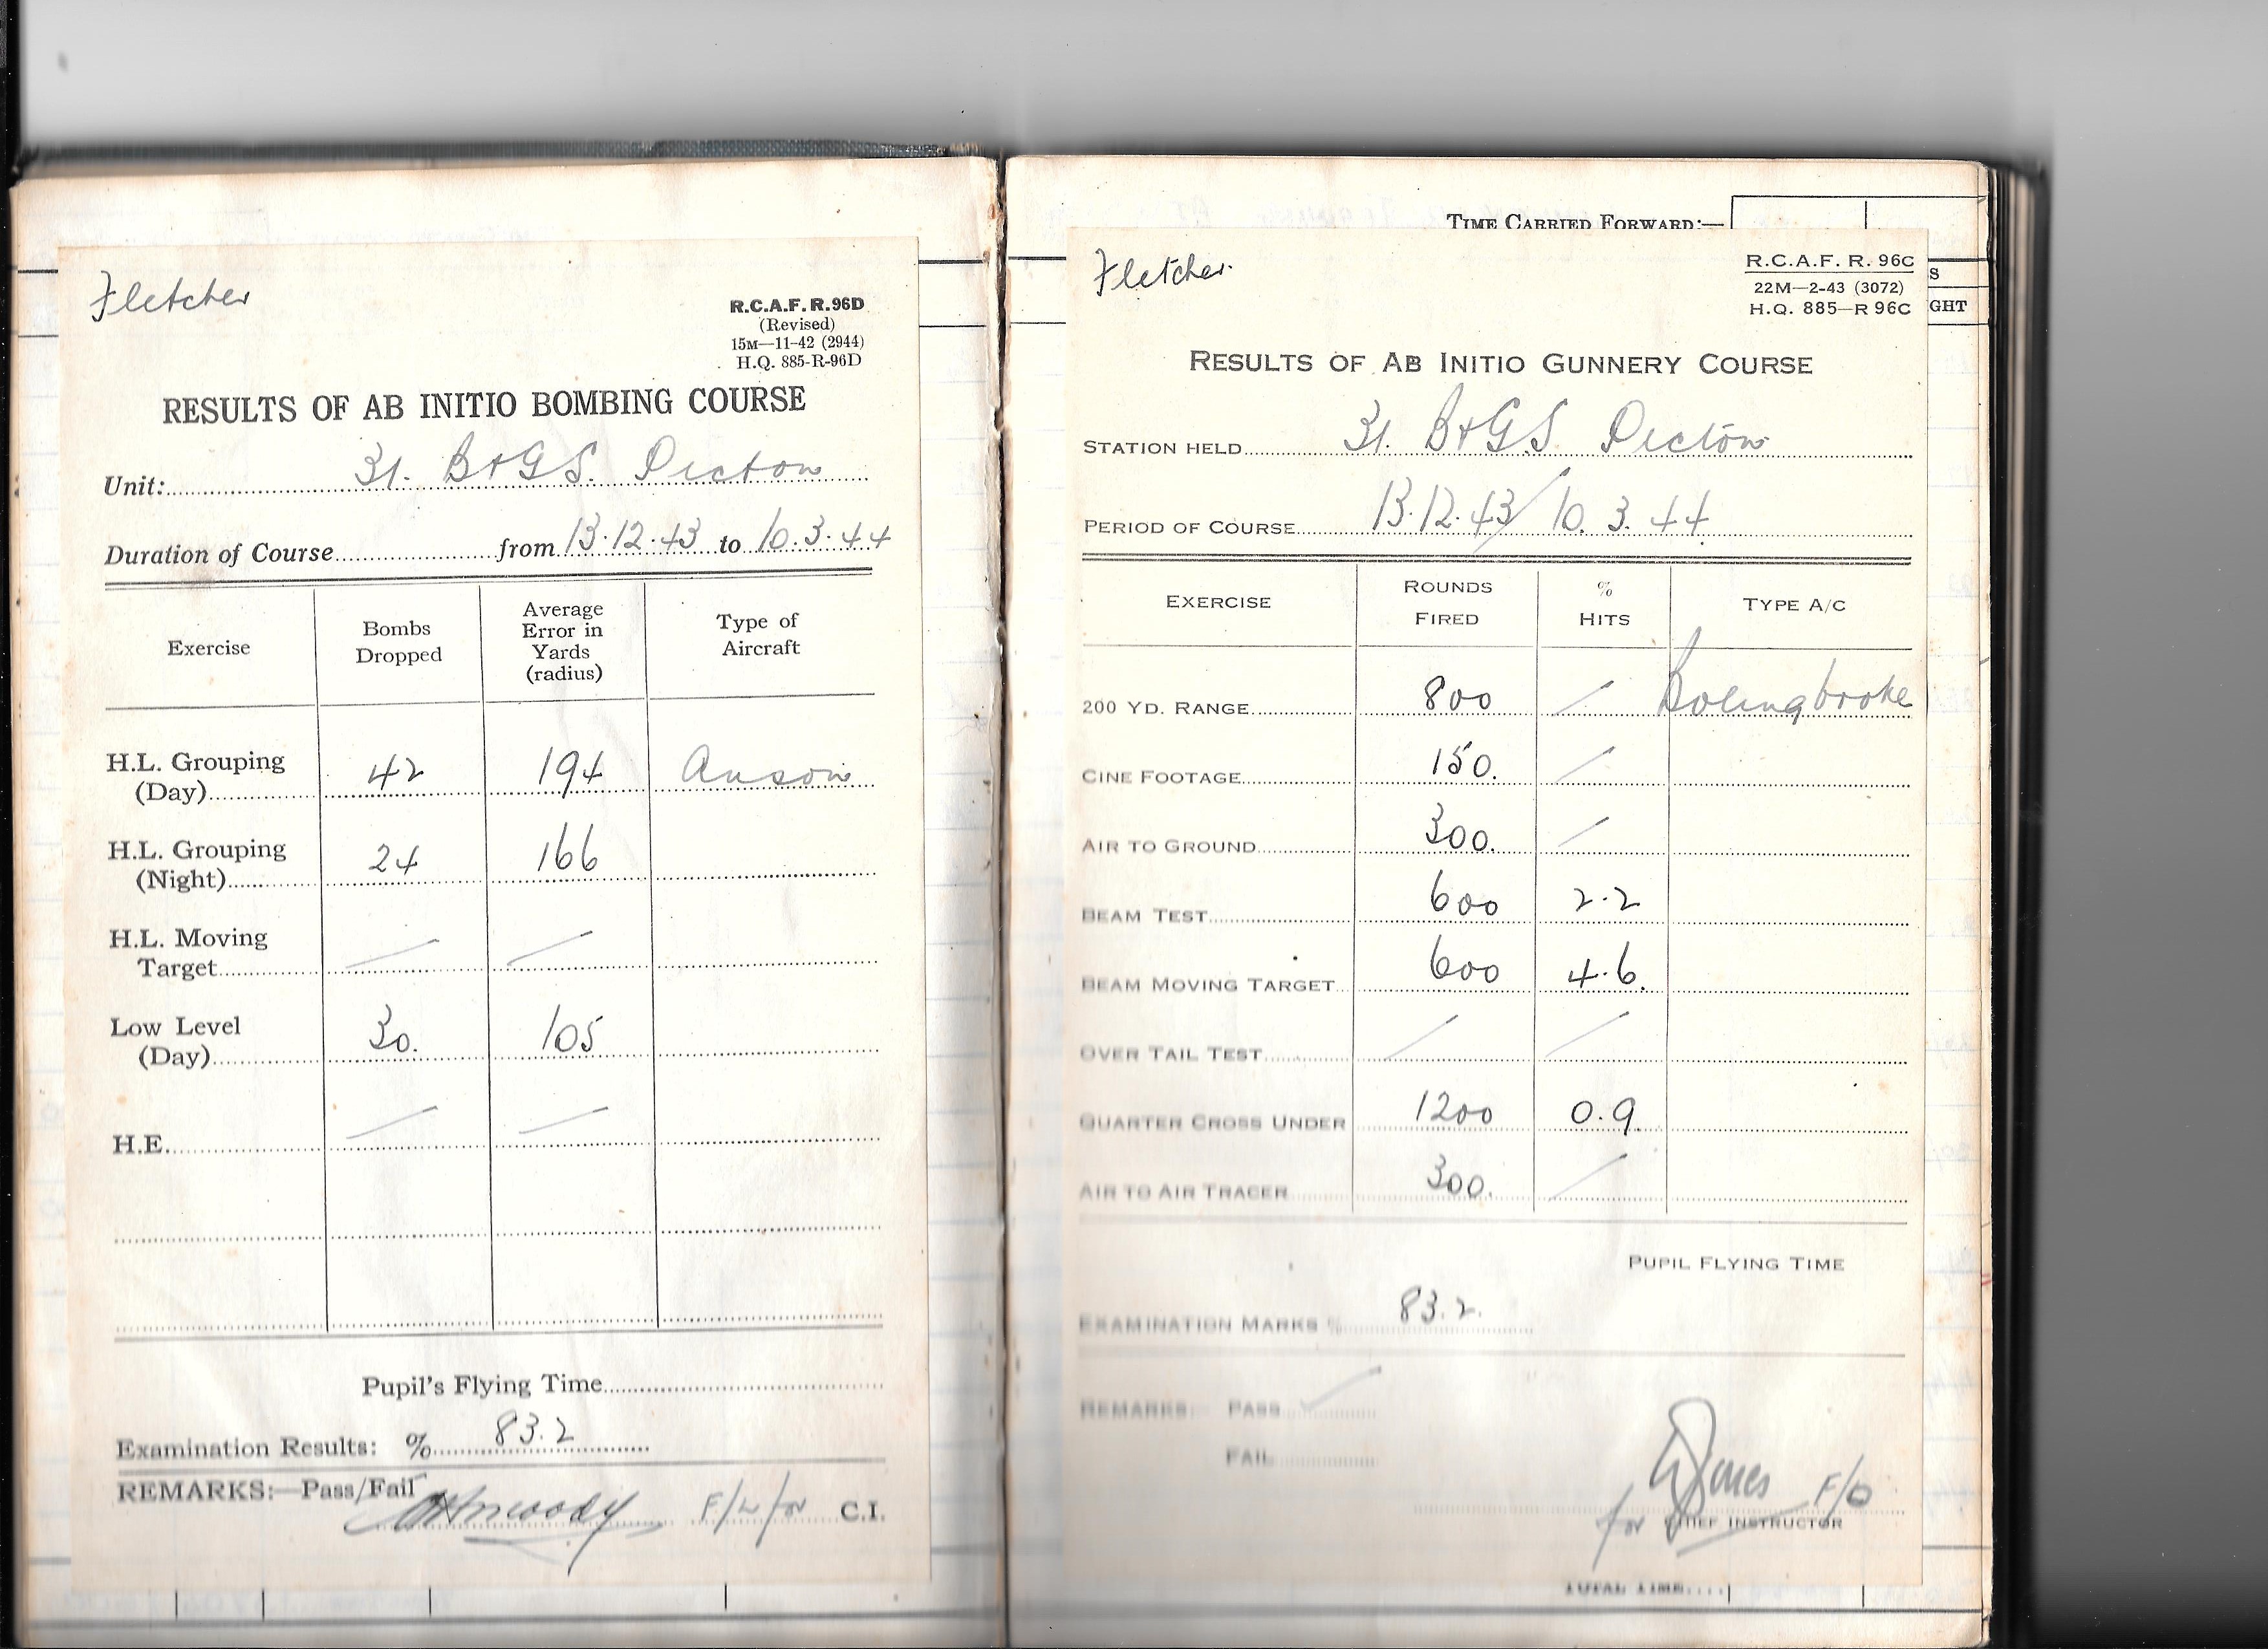 Fletcher
R.C.A.F. R.96D
(Revised)
15M—11-42 (2944)
H.Q. 885-R-96D
RESULTS OF AB INITIO BOMBING COURSE
Unit: 31. B+G.S. Picton
Duration of Course from 13.12.43 to 10.3.44
Exercise Bombs Dropped Average Error in Yards (radius) Type of Aircraft
H.L. Grouping (Day) 42 194 Anson
H.L. Grouping (Night) 24 166
H.L. Moving Target / /
Low Level (Day) 30. 105
H.E. / /
Pupil's Flying Time
Examination Results: % 83.2
REMARKS:—Pass/Fail
F/L/for C.I.
TIME CARRIED FORWARD:—
Fletcher.
R.C.A.F. R. 96C
22M—2-43 (3072)
H.Q. 885—R 96C
S
GHT
RESULTS OF AB INITIO GUNNERY COURSE
STATION HELD 31. B+G.S Picton
PERIOD OF COURSE 13.12.43/10.3.44
EXERCISE ROUNDS FIRED % HITS TYPE A/C
200 YD. RANGE 800 / Bolingbroke
CINE FOOTAGE 150. /
AIR TO GROUND 300. /
BEAM TEST 600 2.2
BEAM MOVING TARGET 600 4.6.
OVER TAIL TEST / /
QUARTER CROSS UNDER 1200 0.9.
AIR TO AIR TRACER 300. /
PUPIL FLYING TIME
EXAMINATION MARKS % 83.2.
REMARKS: PASS ✓
FAIL
Jones F/O
for CHIEF INSTRUCTOR
TOTAL TIME....